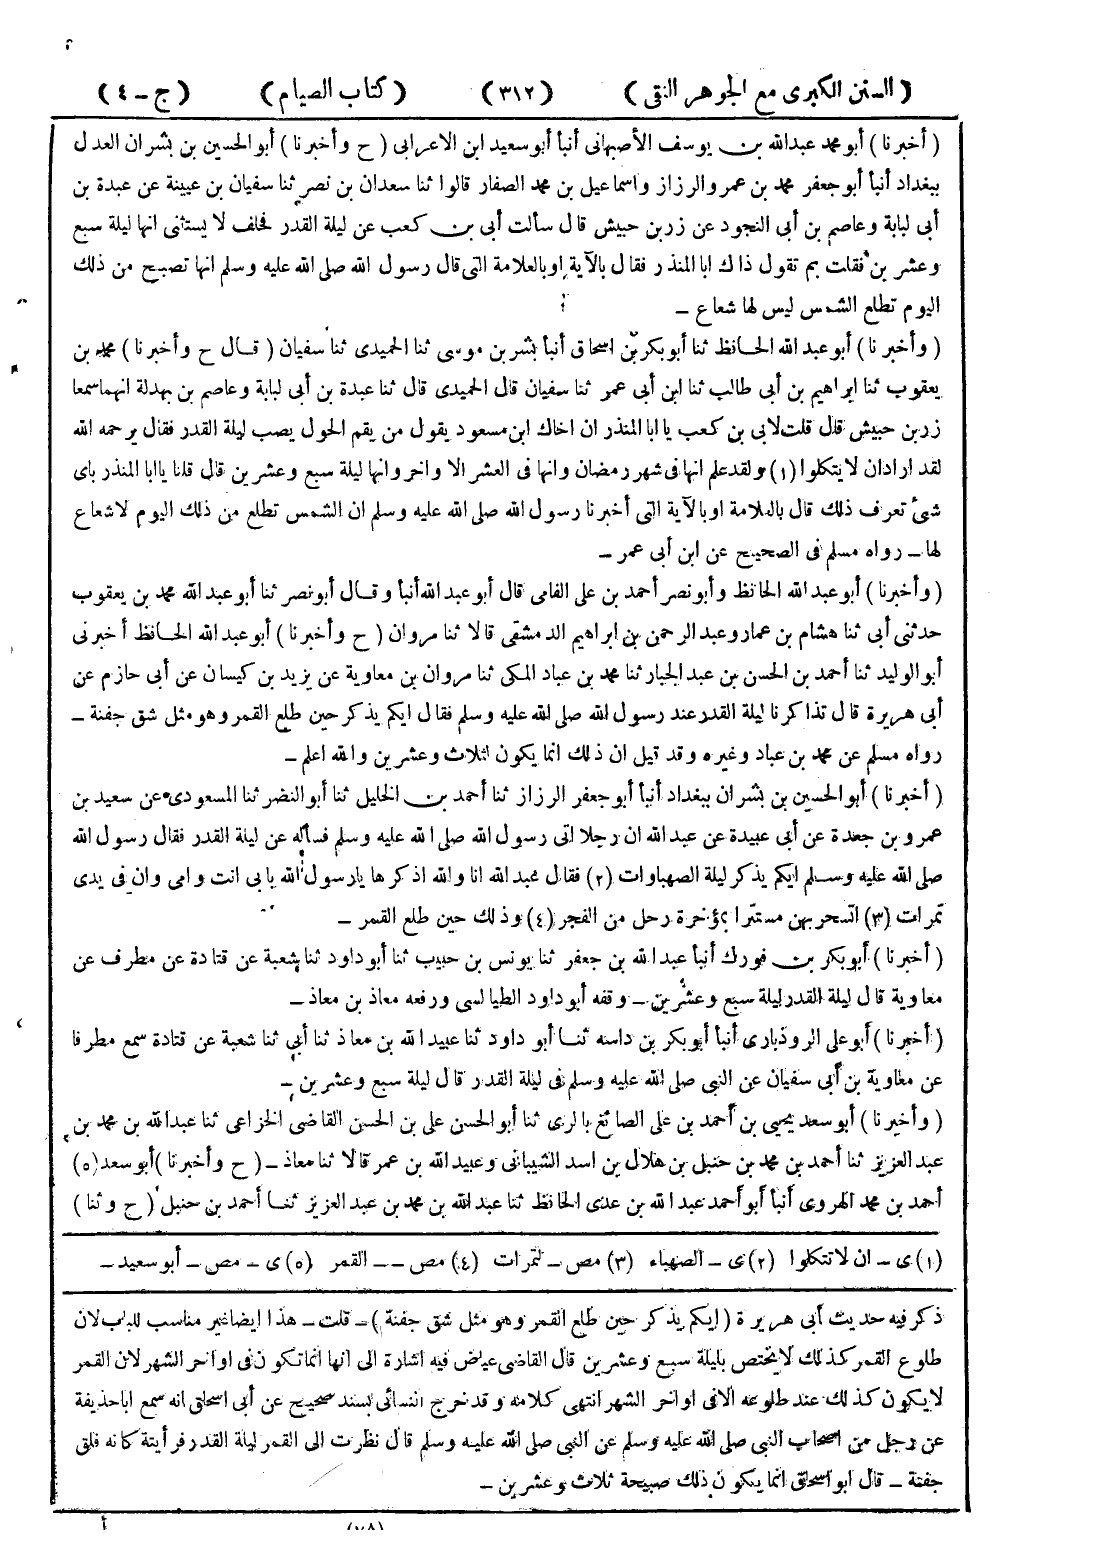 (السنن الكبرى مع الجوهر النقى) (٣١٢) (كتاب الصيام) (ج - ٤)
(أخبرنا) أبو محمد عبدالله بن يوسف الأصبهانى أنبأ أبو سعيد ابن الاعرابى (ح وأخبرنا) أبو الحسين بن بشران العدل
ببغداد أنبأ أبو جعفر محمد بن عمرو الرزاز واسماعيل بن محمد الصفار قالوا ثنا سعدان بن نصر ثنا سفيان بن عيينة عن عبدة بن
أبى لبابة وعاصم بن أبى النجود عن زر بن حبيش قال سألت أبى بن كعب عن ليلة القدر فحلف لا يستثنى انها ليلة سبع
وعشرين فقلت بم تقول ذاك ابا المنذر فقال بالآية او بالعلامة التى قال رسول الله صلى الله عليه وسلم انها تصبح من ذلك
اليوم تطلع الشمس ليس لها شعاع -
(وأخبرنا) أبو عبد الله الحافظ ثنا أبو بكر بن اسحاق أنبأ بشر بن موسى ثنا الحميدى ثنا سفيان (قال ح وأخبرنا) محمد بن
يعقوب ثنا ابراهيم بن أبى طالب ثنا ابن أبى عمر ثنا سفيان قال الحميدى قال ثنا عبدة بن أبى لبابة وعاصم بن بهدلة انهما سمعا
زر بن حبيش قال قلت لابى بن كعب يا ابا المنذر ان اخاك ابن مسعود يقول من يقم الحول يصب ليلة القدر فقال يرحمه الله
لقد اراد ان لا يتكلوا (١) ولقد علم انها فى شهر رمضان وانها فى العشر الاواخر وانها ليلة سبع وعشرين قال قلنا يا ابا المنذر باى
شئ تعرف ذلك قال بالعلامة او بالآية التى أخبرنا رسول الله صلى الله عليه وسلم ان الشمس تطلع من ذلك اليوم لا شعاع
لها - رواه مسلم فى الصحيح عن ابن أبى عمر -
(وأخبرنا) أبو عبد الله الحافظ وأبو نصر أحمد بن على الفامى قال أبو عبد الله أنبأ وقال أبو نصر ثنا أبو عبد الله محمد بن يعقوب
حدثنى أبى ثنا هشام بن عمار وعبد الرحمن بن ابراهيم الدمشقى قالا ثنا مروان (ح وأخبرنا) أبو عبد الله الحافظ أخبرنى
أبو الوليد ثنا أحمد بن الحسن بن عبد الجبار ثنا محمد بن عباد المكى ثنا مروان بن معاوية عن يزيد بن كيسان عن أبى حازم عن
أبى هريرة قال تذاكرنا ليلة القدر عند رسول الله صلى الله عليه وسلم فقال ايكم يذكر حين طلع القمر وهو مثل شق جفنة -
رواه مسلم عن محمد بن عباد وغيره وقد قيل ان ذلك انما يكون لثلاث وعشرين والله اعلم -
(أخبرنا) أبو الحسين بن بشران ببغداد أنبأ أبو جعفر الرزاز ثنا أحمد بن الخليل ثنا أبو النضر ثنا المسعودى عن سعيد بن
عمرو بن جعدة عن أبى عبيدة عن عبد الله ان رجلا اتى رسول الله صلى الله عليه وسلم فسأله عن ليلة القدر فقال رسول الله
صلى الله عليه وسلم ايكم يذكر ليلة الصهباوات (٢) فقال عبد الله انا والله اذكرها يا رسول الله بابى انت وامى وان فى يدى
تمرات (٣) اتسحر بهن مستترا بمؤخرة رحل من الفجر (٤) وذلك حين طلع القمر -
(أخبرنا) أبو بكر بن فورك أنبأ عبد الله بن جعفر ثنا يونس بن حبيب ثنا أبو داود ثنا شعبة عن قتادة عن مطرف عن
معاوية قال ليلة القدر ليلة سبع وعشرين - وقفه أبو داود الطيالسى ورفعه معاذ بن معاذ -
(أخبرنا) أبو على الروذبارى أنبأ أبو بكر بن داسه ثنا أبو داود ثنا عبيد الله بن معاذ ثنا أبى ثنا شعبة عن قتادة سمع مطرفا
عن معاوية بن أبى سفيان عن النبى صلى الله عليه وسلم فى ليلة القدر قال ليلة سبع وعشرين -
(وأخبرنا) أبو سعد يحيى بن أحمد بن على الصائغ بالرى ثنا أبو الحسن على بن الحسن القاضى الخزاعى ثنا عبد الله بن محمد بن
عبد العزيز ثنا أحمد بن محمد بن حنبل بن هلال بن اسد الشيبانى وعبيد الله بن عمر قالا ثنا معاذ - (ح وأخبرنا) أبو سعد (٥)
أحمد بن محمد الهروى أنبأ أبو أحمد عبد الله بن عدى الحافظ ثنا عبد الله بن محمد بن عبد العزيز ثنا أحمد بن حنبل (ح وثنا)
(١) ى - ان لا تتكلوا (٢) ى - الصهباء (٣) مص - لتمرات (٤) مص - - القمر (٥) ى - مص - أبو سعيد -
ذكر فيه حديث أبى هريرة (ايكم يذكر حين طلع القمر وهو مثل شق جفنة) - قلت - هذا ايضا غير مناسب للباب لان
طلوع القمر كذلك لا يختص بليلة سبع وعشرين قال القاضى عياض فيه اشارة الى انها انما تكون فى اواخر الشهر لان القمر
لا يكون كذلك عند طلوعه الا فى اواخر الشهر انتهى كلامه وقد خرج النسائى بسند صحيح عن أبى اسحاق انه سمع ابا حذيفة
عن رجل من اصحاب النبى صلى الله عليه وسلم عن النبى صلى الله عليه وسلم قال نظرت الى القمر ليلة القدر فرأيته كانه فلق
جفنة - قال ابو اسحاق انما يكون ذلك صبيحة ثلاث وعشرين -
أ
(٧٨)